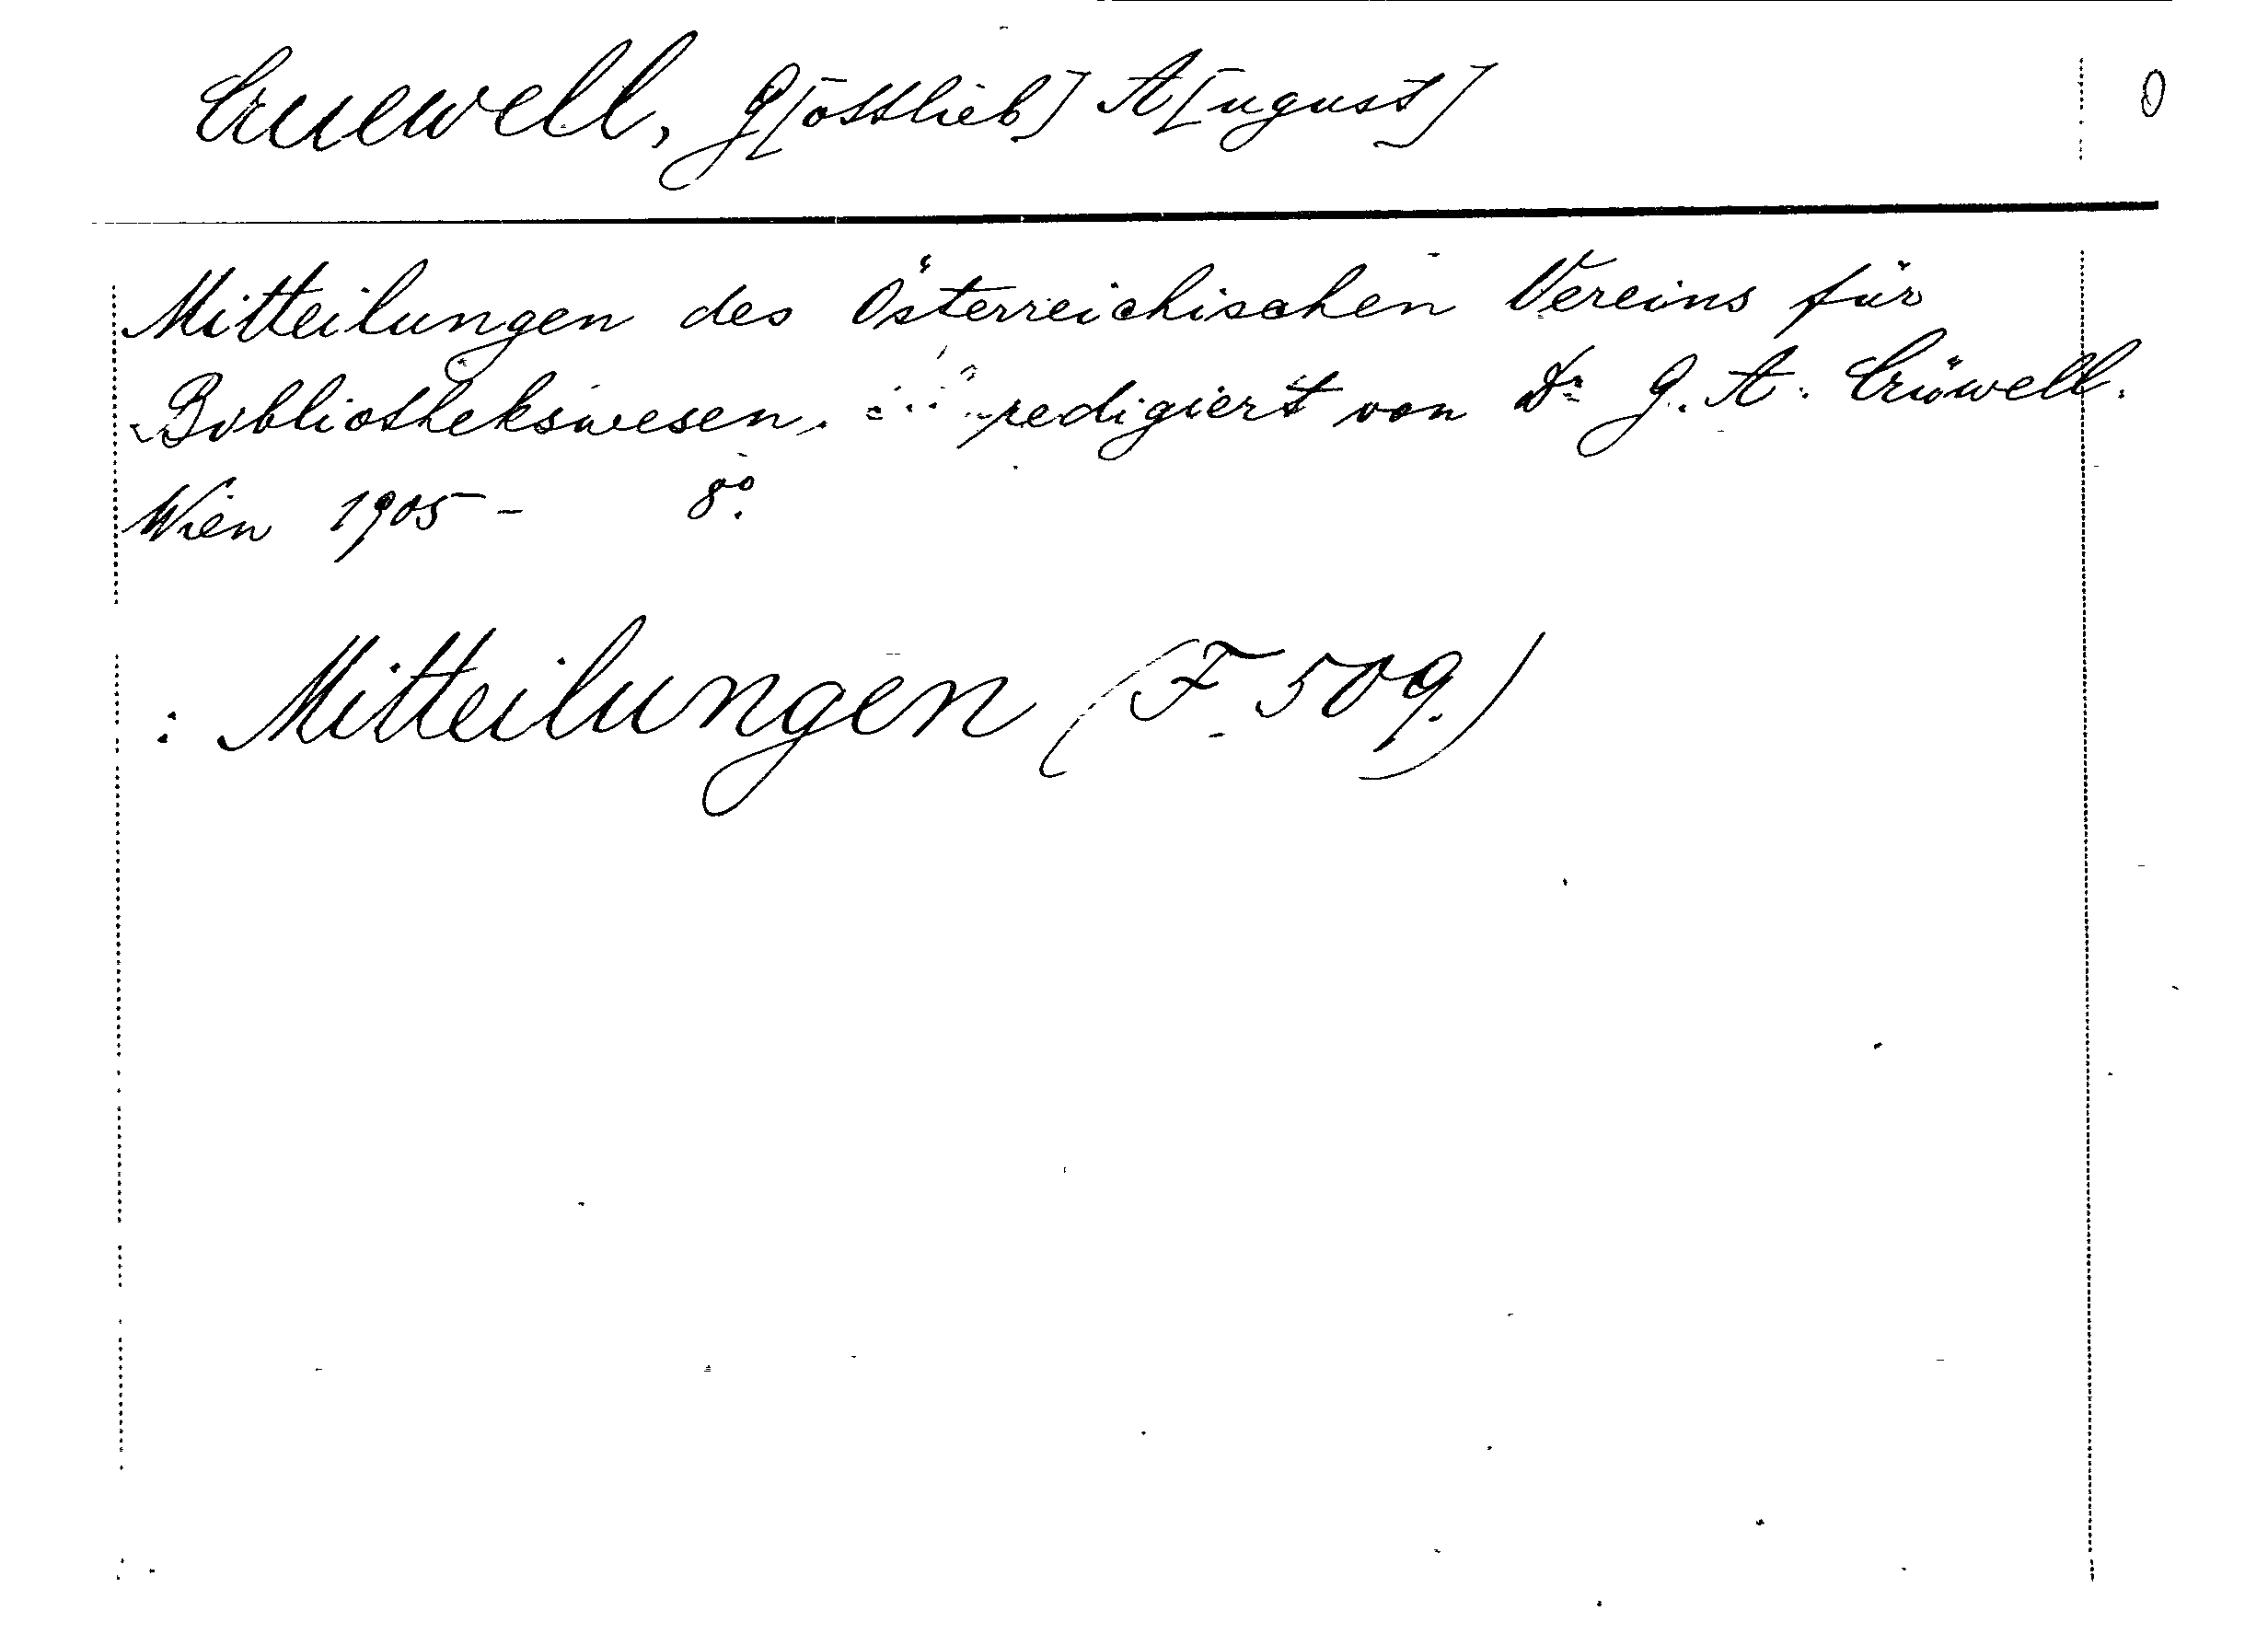 Cruewell, G[ottlieb] A[ugust] 0
Mitteilungen des Österreichischen Vereins für
Bibliothekswesen. redigiert von Dr G. A. Crüwell.
Wien 1905- 8o.
: Mitteilungen (F 509.)